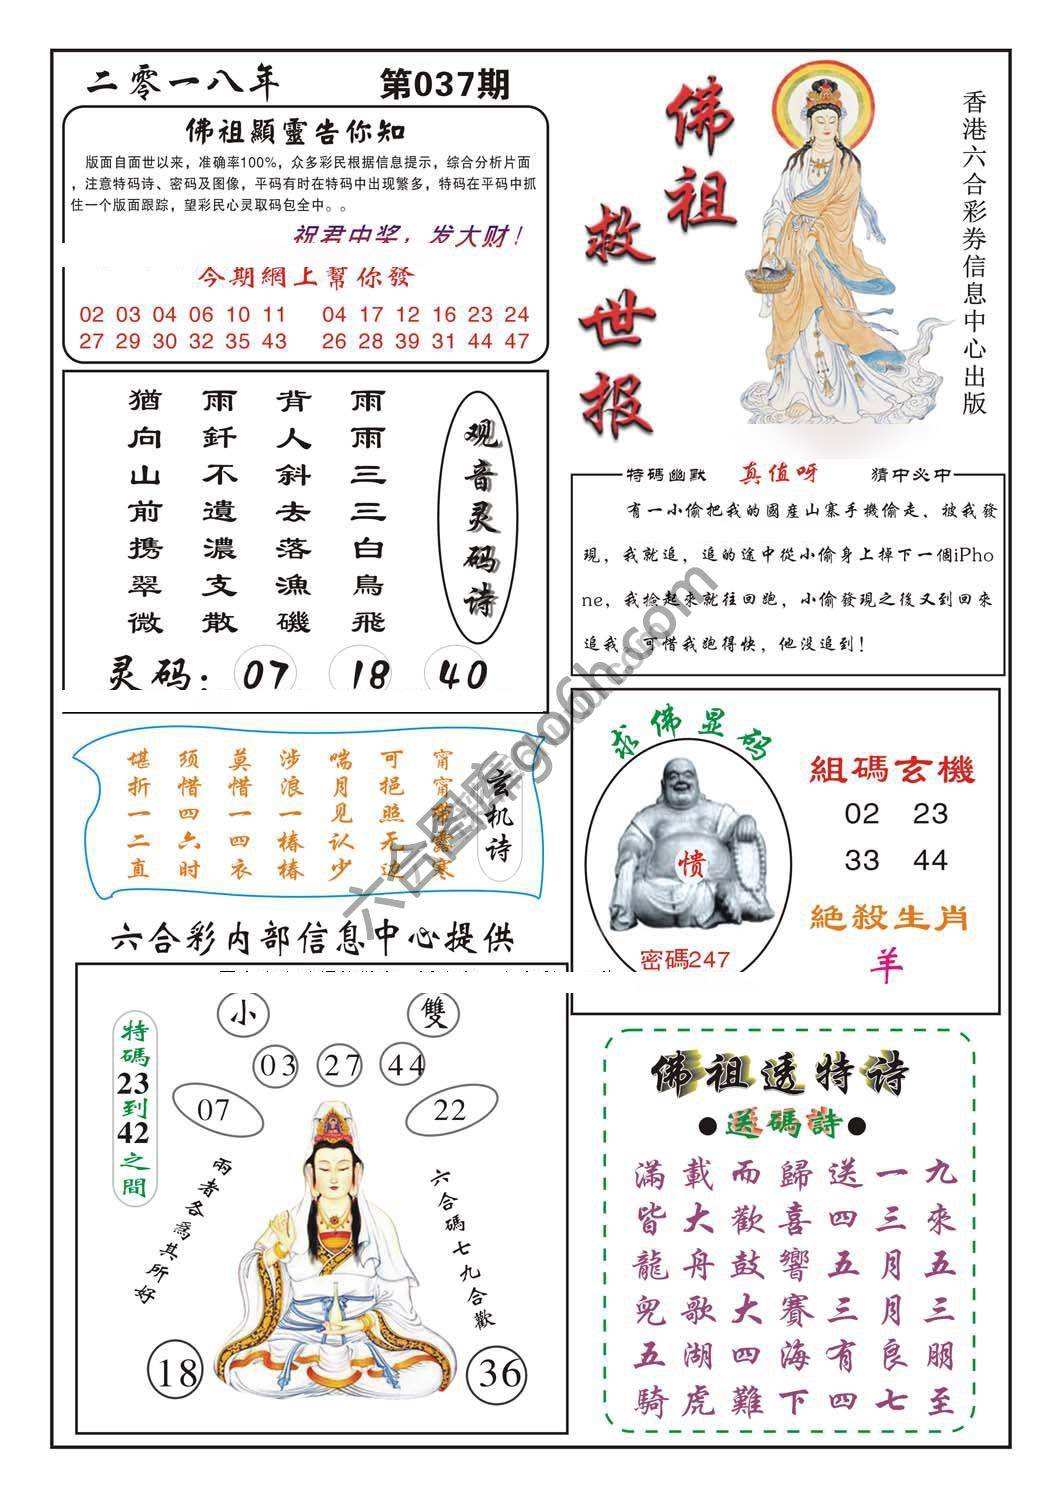 二零一八年
第037期
佛祖顯靈告你知
版面自面世以来，准确率100%，众多彩民根据信息提示，综合分析片面
，注意特码诗、密码及图像，平码有时在特码中出现繁多，特码在平码中抓
住一个版面跟踪，望彩民心灵取码包全中。。
祝君中奖，发大财！
今期網上幫你發
02 03 04 06 10 11 04 17 12 16 23 24
27 29 30 32 35 43 26 28 39 31 44 47
佛祖
救世报
香港六合彩券信息中心出版
观音灵码诗
雨雨三三白鳥飛
背人斜去落漁磯
雨釬不遺濃支散
猶向山前携翠微
灵码：07 18 40
特碼幽默 真值呀 猜中必中
有一小偷把我的國産山寨手機偷走，被我發
現，我就追，追的途中從小偷身上掉下一個iPho
ne，我捡起來就往回跑，小偷發現之後又到回來
追我。可惜我跑得快，他没追到！
玄机诗
甯甯带露寒
可挹照无边
喘月见认少
涉浪一椿椿
莫惜一四衣
须惜四六时
堪折一二直
求佛显码
愦
密碼247
組碼玄機
02 23
33 44
絕殺生肖
羊
六合彩内部信息中心提供
小 雙
03 27 44
07 22
特碼23到42之間
兩者各爲其所好
六合碼七九合歡
18 36
佛祖透特诗
●送碼詩●
滿載而歸送一九
皆大歡喜四三來
龍舟鼓響五月五
兇歌大賽三月三
五湖四海有良朋
騎虎難下四七至
六合图库go6h.com